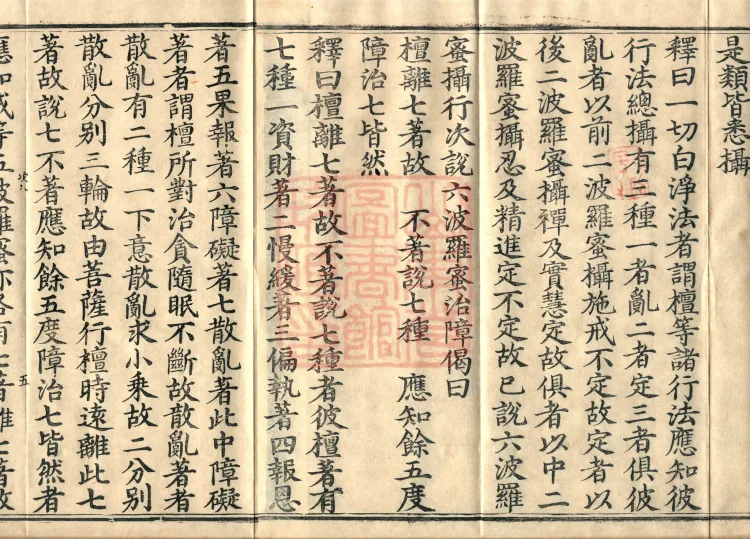 是類皆悉攝
釋曰一切白淨法者謂檀等諸行法應知彼
行法總攝有三種一者亂二者定三者俱彼
亂者以前二波羅蜜攝施戒不定故定者以
後二波羅蜜攝禪及實慧定故俱者以中二
波羅蜜攝忍及精進定不定故已說六波羅
蜜攝行次說六波羅蜜治障偈曰
檀離七著故　不著說七種　應知餘五度
障治七皆然
釋曰檀離七著故不著說七種者彼檀著有
七種一資財著二慢緩著三偏執著四報恩
著五果報著六障礙著七散亂著此中障礙
著者謂檀所對治貪隨眠不斷故散亂著者
散亂有二種一下意散亂求小乘故二分別
散亂分別三輪故由菩薩行檀時遠離此七
著故說七不著應知餘五度障治七皆然者
應知戒等五波羅蜜亦各有七著離七著故
五